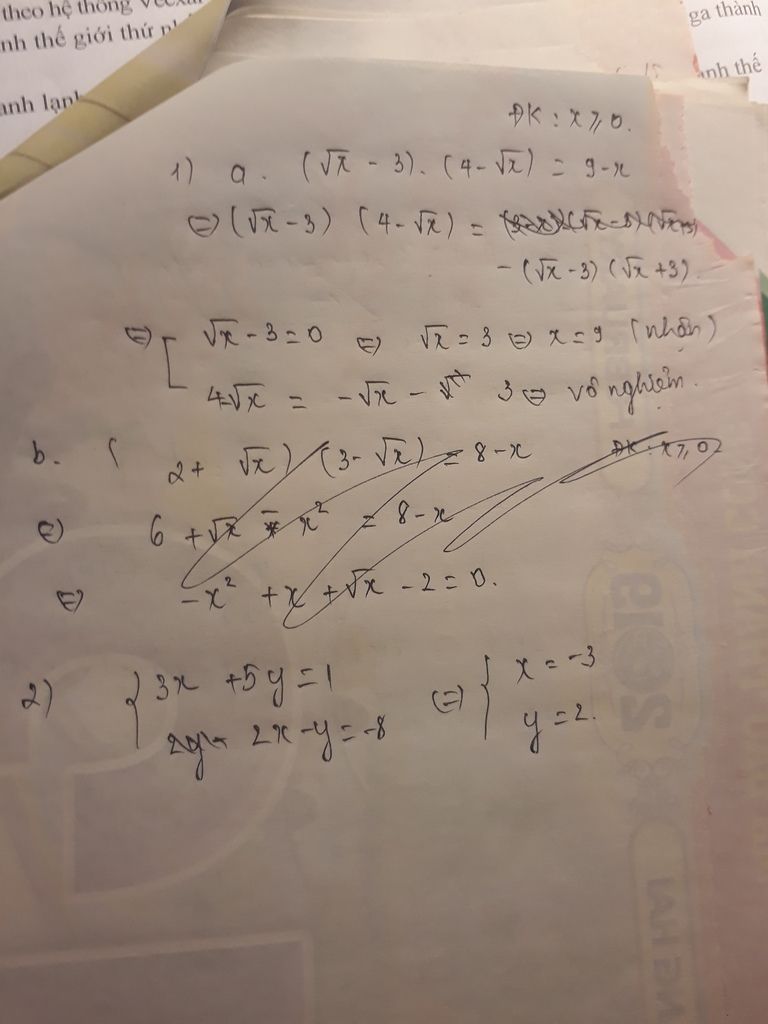 theo hệ thống
nh thế giới thứ
anh lạnh
ga thành
anh thế
ĐK : x ≥ 0.
1) a. (√x - 3). (4-√x) = 9-x
⇔ (√x - 3) (4-√x) =
-(√x -3) (√x +3)
⇔ [ √x - 3 = 0 ⇔ √x = 3 ⇔ x = 9 (nhận)
4-√x = -√x - 3 ⇔ vô nghiệm.
b. ( 2 + √x) (3 - √x) = 8-x ĐK : x ≥ 0
⇔ 6 + √x - x² = 8-x
⇔ -x² + x + √x - 2 = 0.
2) { 3x + 5y = 1 ⇔ { x = -3
2x - y = -8 y = 2.
2019